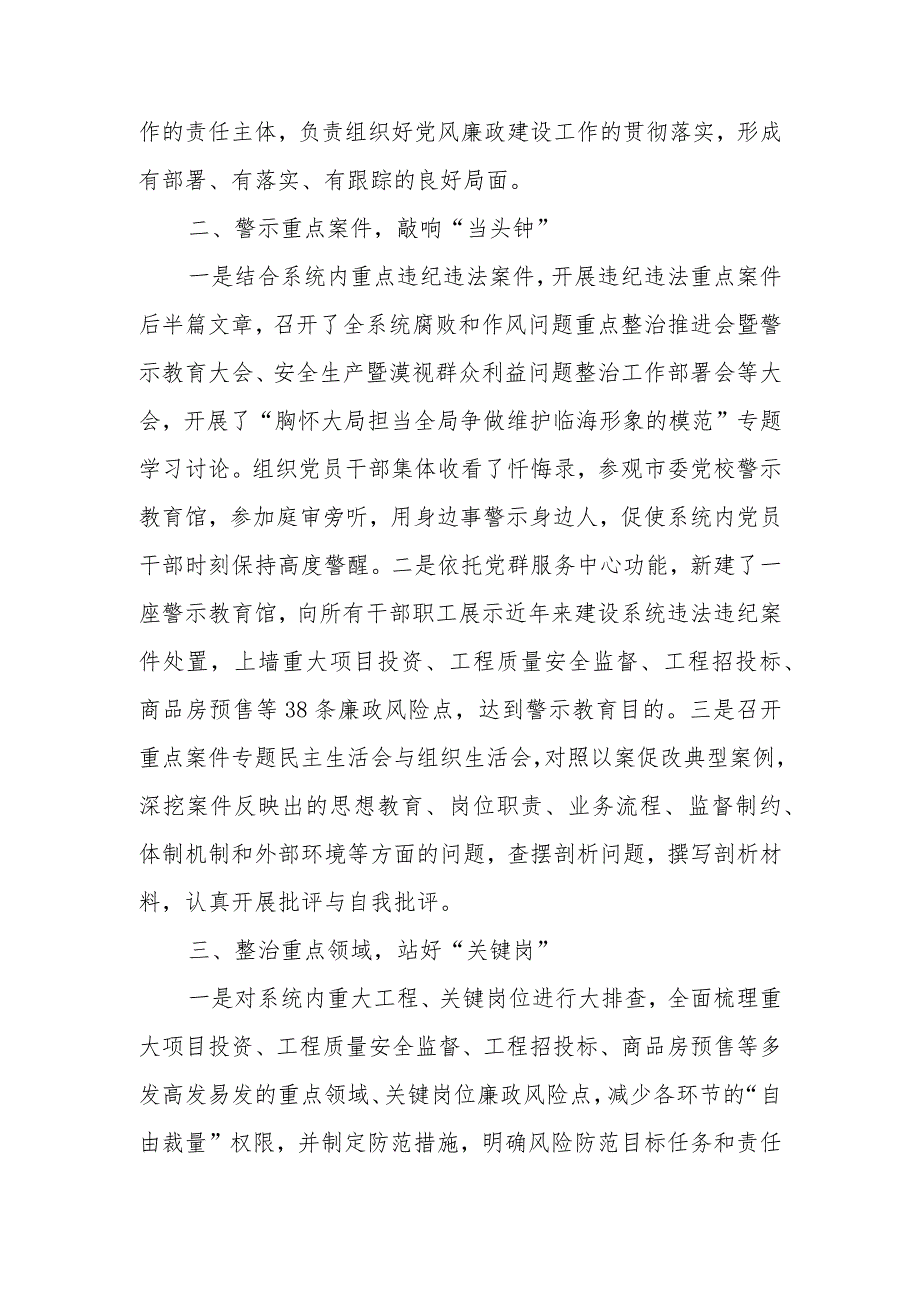 作的责任主体，负责组织好党风廉政建设工作的贯彻落实，形成
有部署、有落实、有跟踪的良好局面。
二、警示重点案件，敲响“当头钟”
一是结合系统内重点违纪违法案件，开展违纪违法重点案件
后半篇文章，召开了全系统腐败和作风问题重点整治推进会暨警
示教育大会、安全生产暨漠视群众利益问题整治工作部署会等大
会，开展了“胸怀大局担当全局争做维护临海形象的模范”专题
学习讨论。组织党员干部集体收看了忏悔录，参观市委党校警示
教育馆，参加庭审旁听，用身边事警示身边人，促使系统内党员
干部时刻保持高度警醒。二是依托党群服务中心功能，新建了一
座警示教育馆，向所有干部职工展示近年来建设系统违法违纪案
件处置，上墙重大项目投资、工程质量安全监督、工程招投标、
商品房预售等 38 条廉政风险点，达到警示教育目的。三是召开
重点案件专题民主生活会与组织生活会，对照以案促改典型案例，
深挖案件反映出的思想教育、岗位职责、业务流程、监督制约、
体制机制和外部环境等方面的问题，查摆剖析问题，撰写剖析材
料，认真开展批评与自我批评。
三、整治重点领域，站好“关键岗”
一是对系统内重大工程、关键岗位进行大排查，全面梳理重
大项目投资、工程质量安全监督、工程招投标、商品房预售等多
发高发易发的重点领域、关键岗位廉政风险点，减少各环节的“自
由裁量”权限，并制定防范措施，明确风险防范目标任务和责任